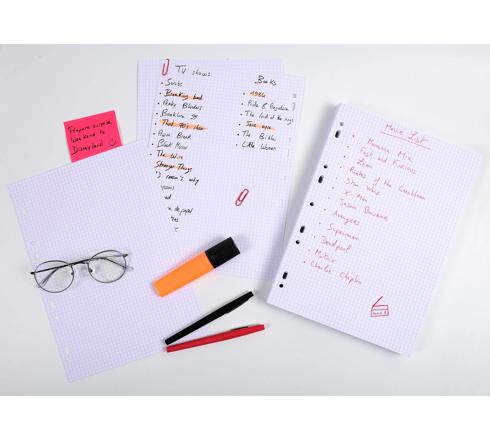 TV shows
• Suits
• Breaking bad
• Peaky Blinders
• Brooklyn 99
• That 70s show
• Prison Break
• Black Mirror
• The Wire
• Stranger Things
• 13 reason's why
Books
• 1984
• Pride & Prejudice
• The lord of the rings
• Jane eyre
• The Bible
• Little Women
Prepare surprise
Weekend to
Disneyland
Movie List
• Mamma Mia
• Fast and Furious
• Lion
• Pirates of the Caribbean
• Star Wars
• X-Men
• Jason Bourne
• Avengers
• Superman
• Deadpool
• Matrix
• Charlie Chaplin